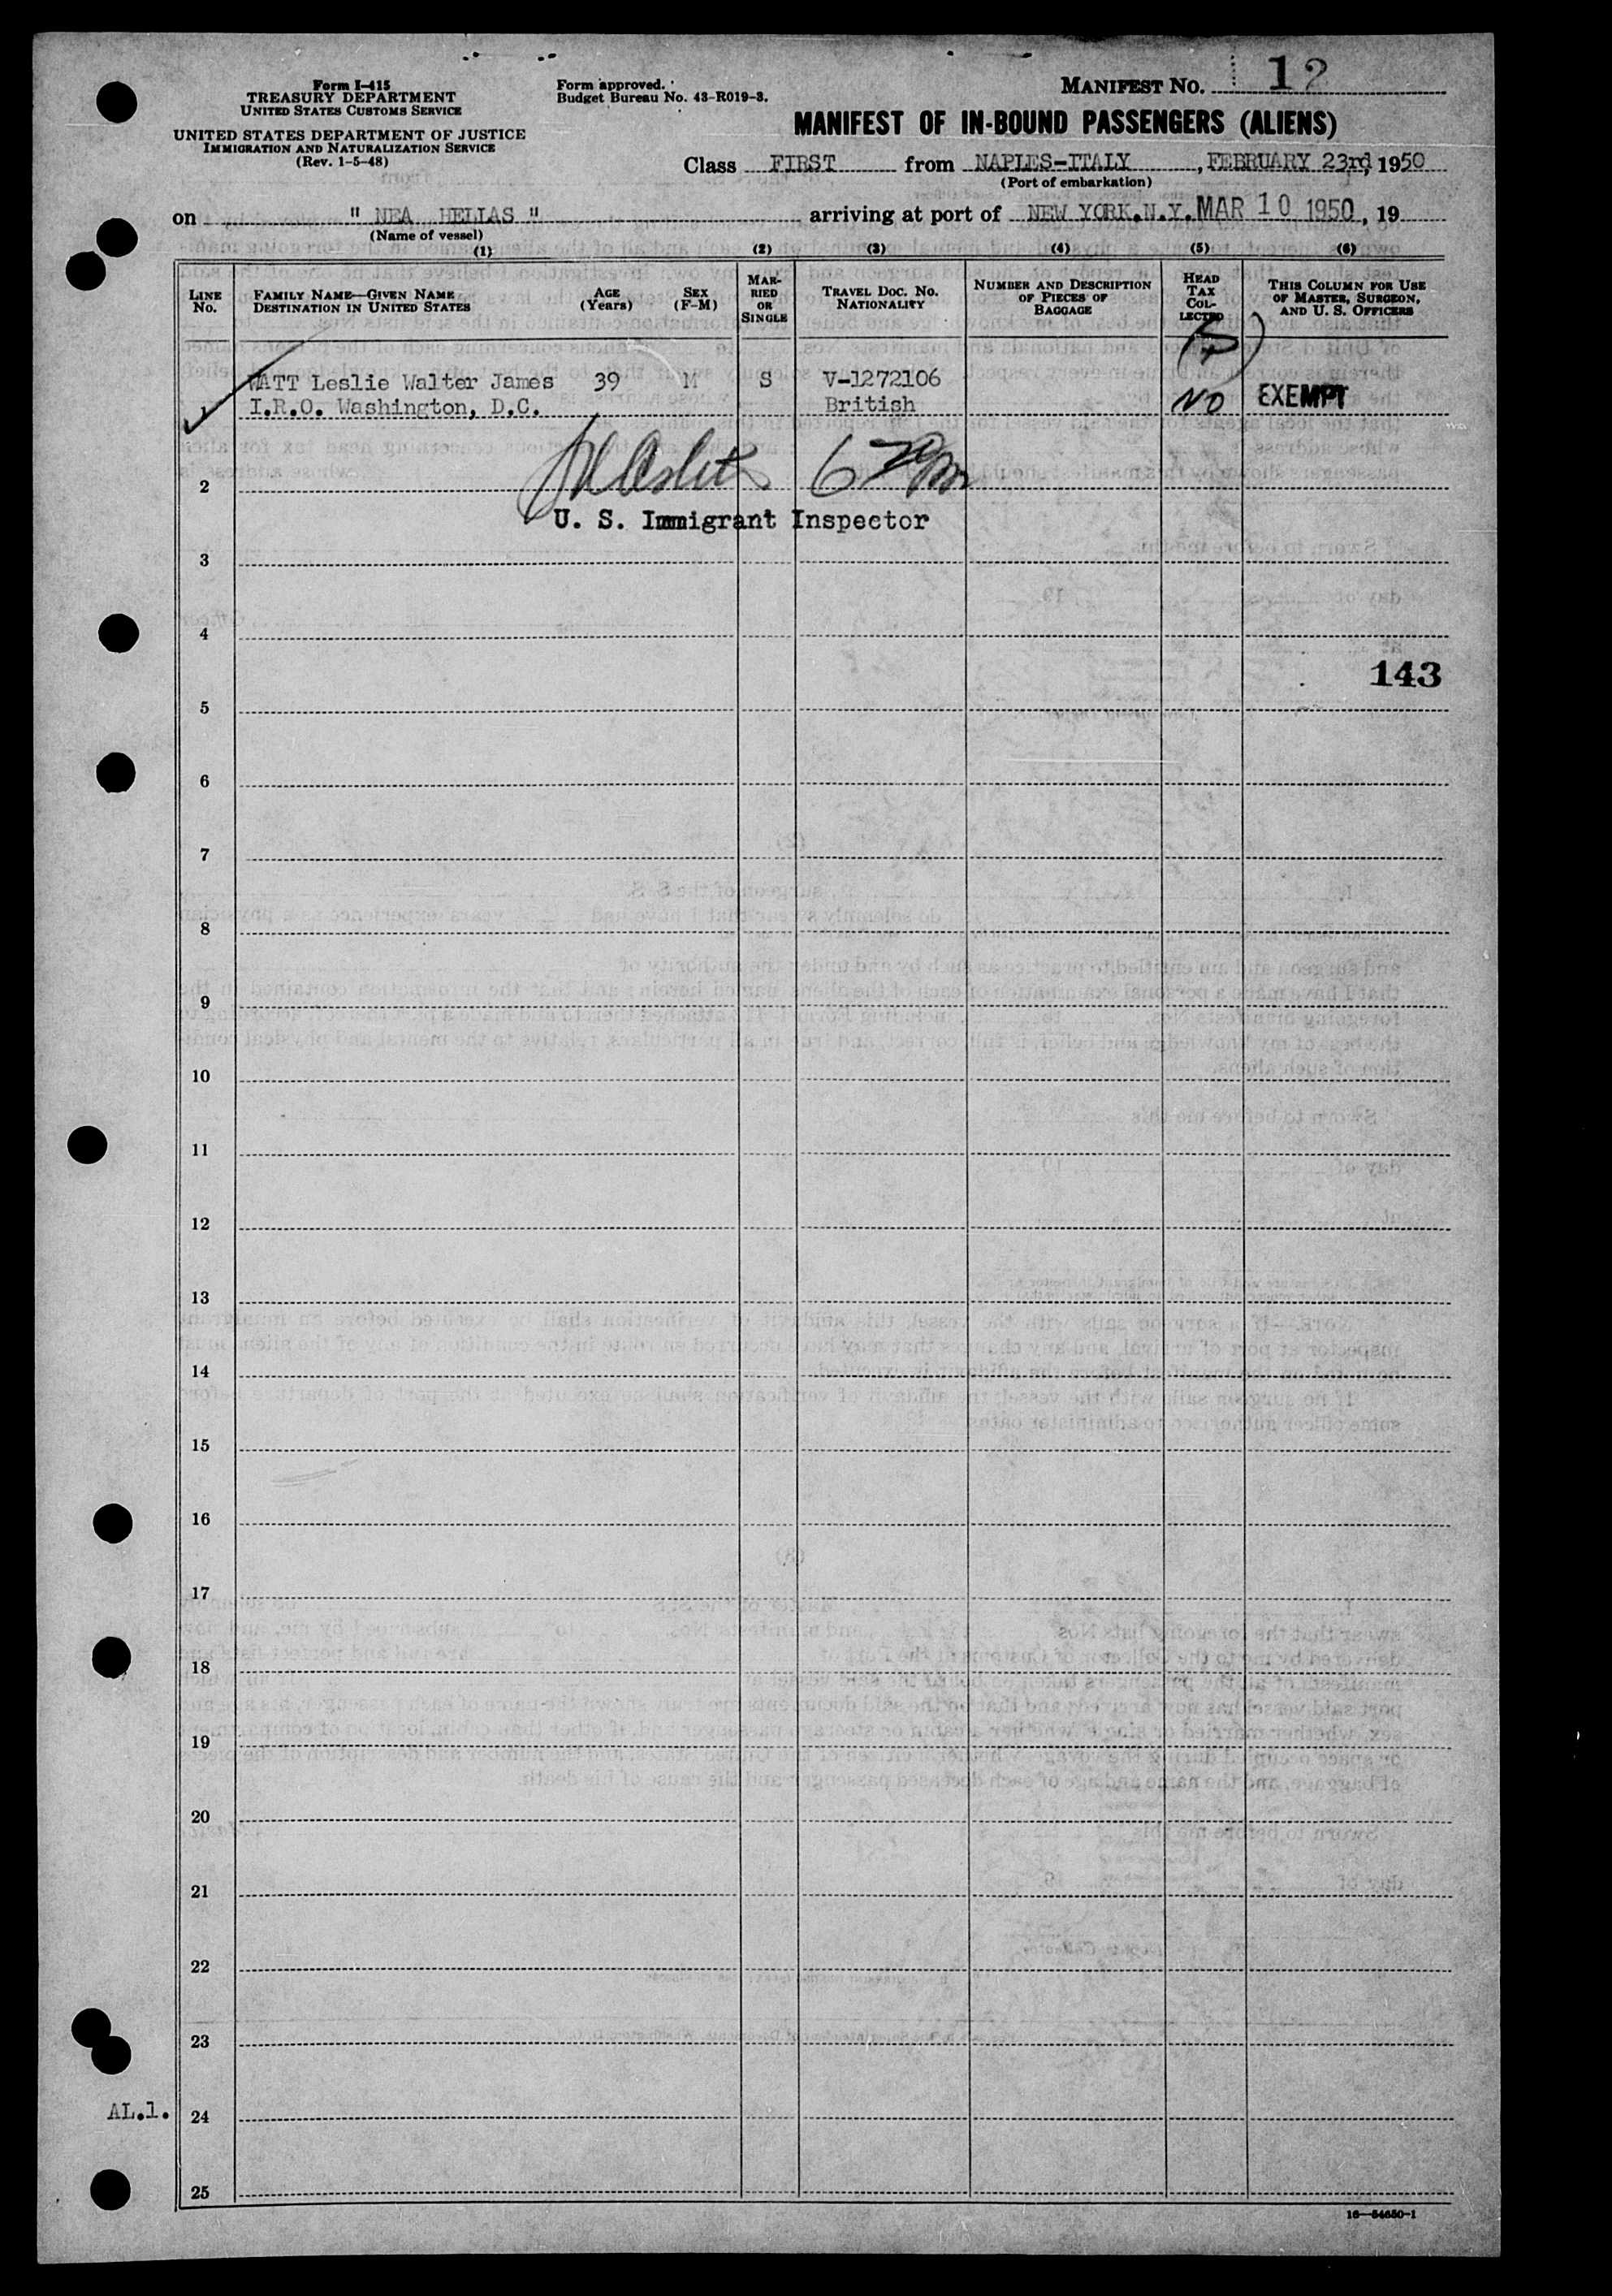 Form I-415
TREASURY DEPARTMENT
UNITED STATES CUSTOMS SERVICE
UNITED STATES DEPARTMENT OF JUSTICE
IMMIGRATION AND NATURALIZATION SERVICE
(Rev. 1-5-48)
Form approved.
Budget Bureau No. 43-R019-3.
MANIFEST NO. 12
MANIFEST OF IN-BOUND PASSENGERS (ALIENS)
Class FIRST from NAPLES-ITALY, FEBRUARY 23rd, 1950
(Port of embarkation)
on " NEA HELLAS " arriving at port of NEW YORK.N.Y. MAR 10 1950, 19
(Name of vessel)
(1) (2) (3) (4) (5) (6)
LINE No. FAMILY NAME—GIVEN NAME DESTINATION IN UNITED STATES AGE (Years) SEX (F-M) MARRIED OR SINGLE TRAVEL DOC. NO. NATIONALITY NUMBER AND DESCRIPTION OF PIECES OF BAGGAGE HEAD TAX COLLECTED THIS COLUMN FOR USE OF MASTER, SURGEON, AND U. S. OFFICERS
WATT Leslie Walter James 39 M S V-1272106
1 I.R.O. Washington, D.C. British NO EXEMPT
2
U. S. Immigrant Inspector
3
4
143
5
6
7
8
9
10
11
12
13
14
15
16
17
18
19
20
21
22
23
AL.1. 24
25
16—54650-1